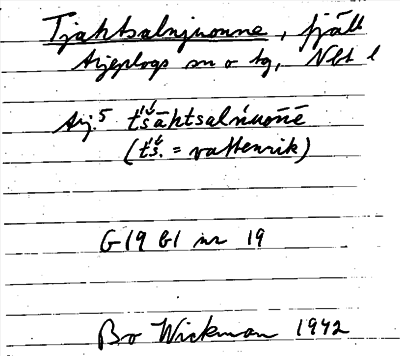 Tjahtsalnjuonne, fjäll
Arjeplogs sn o tg, Nbt l
Arj.5 t́śāhtsalńuōnē
(t́ś. = vattenrik)
G19 bl nr 19
Bo Wickman 1942